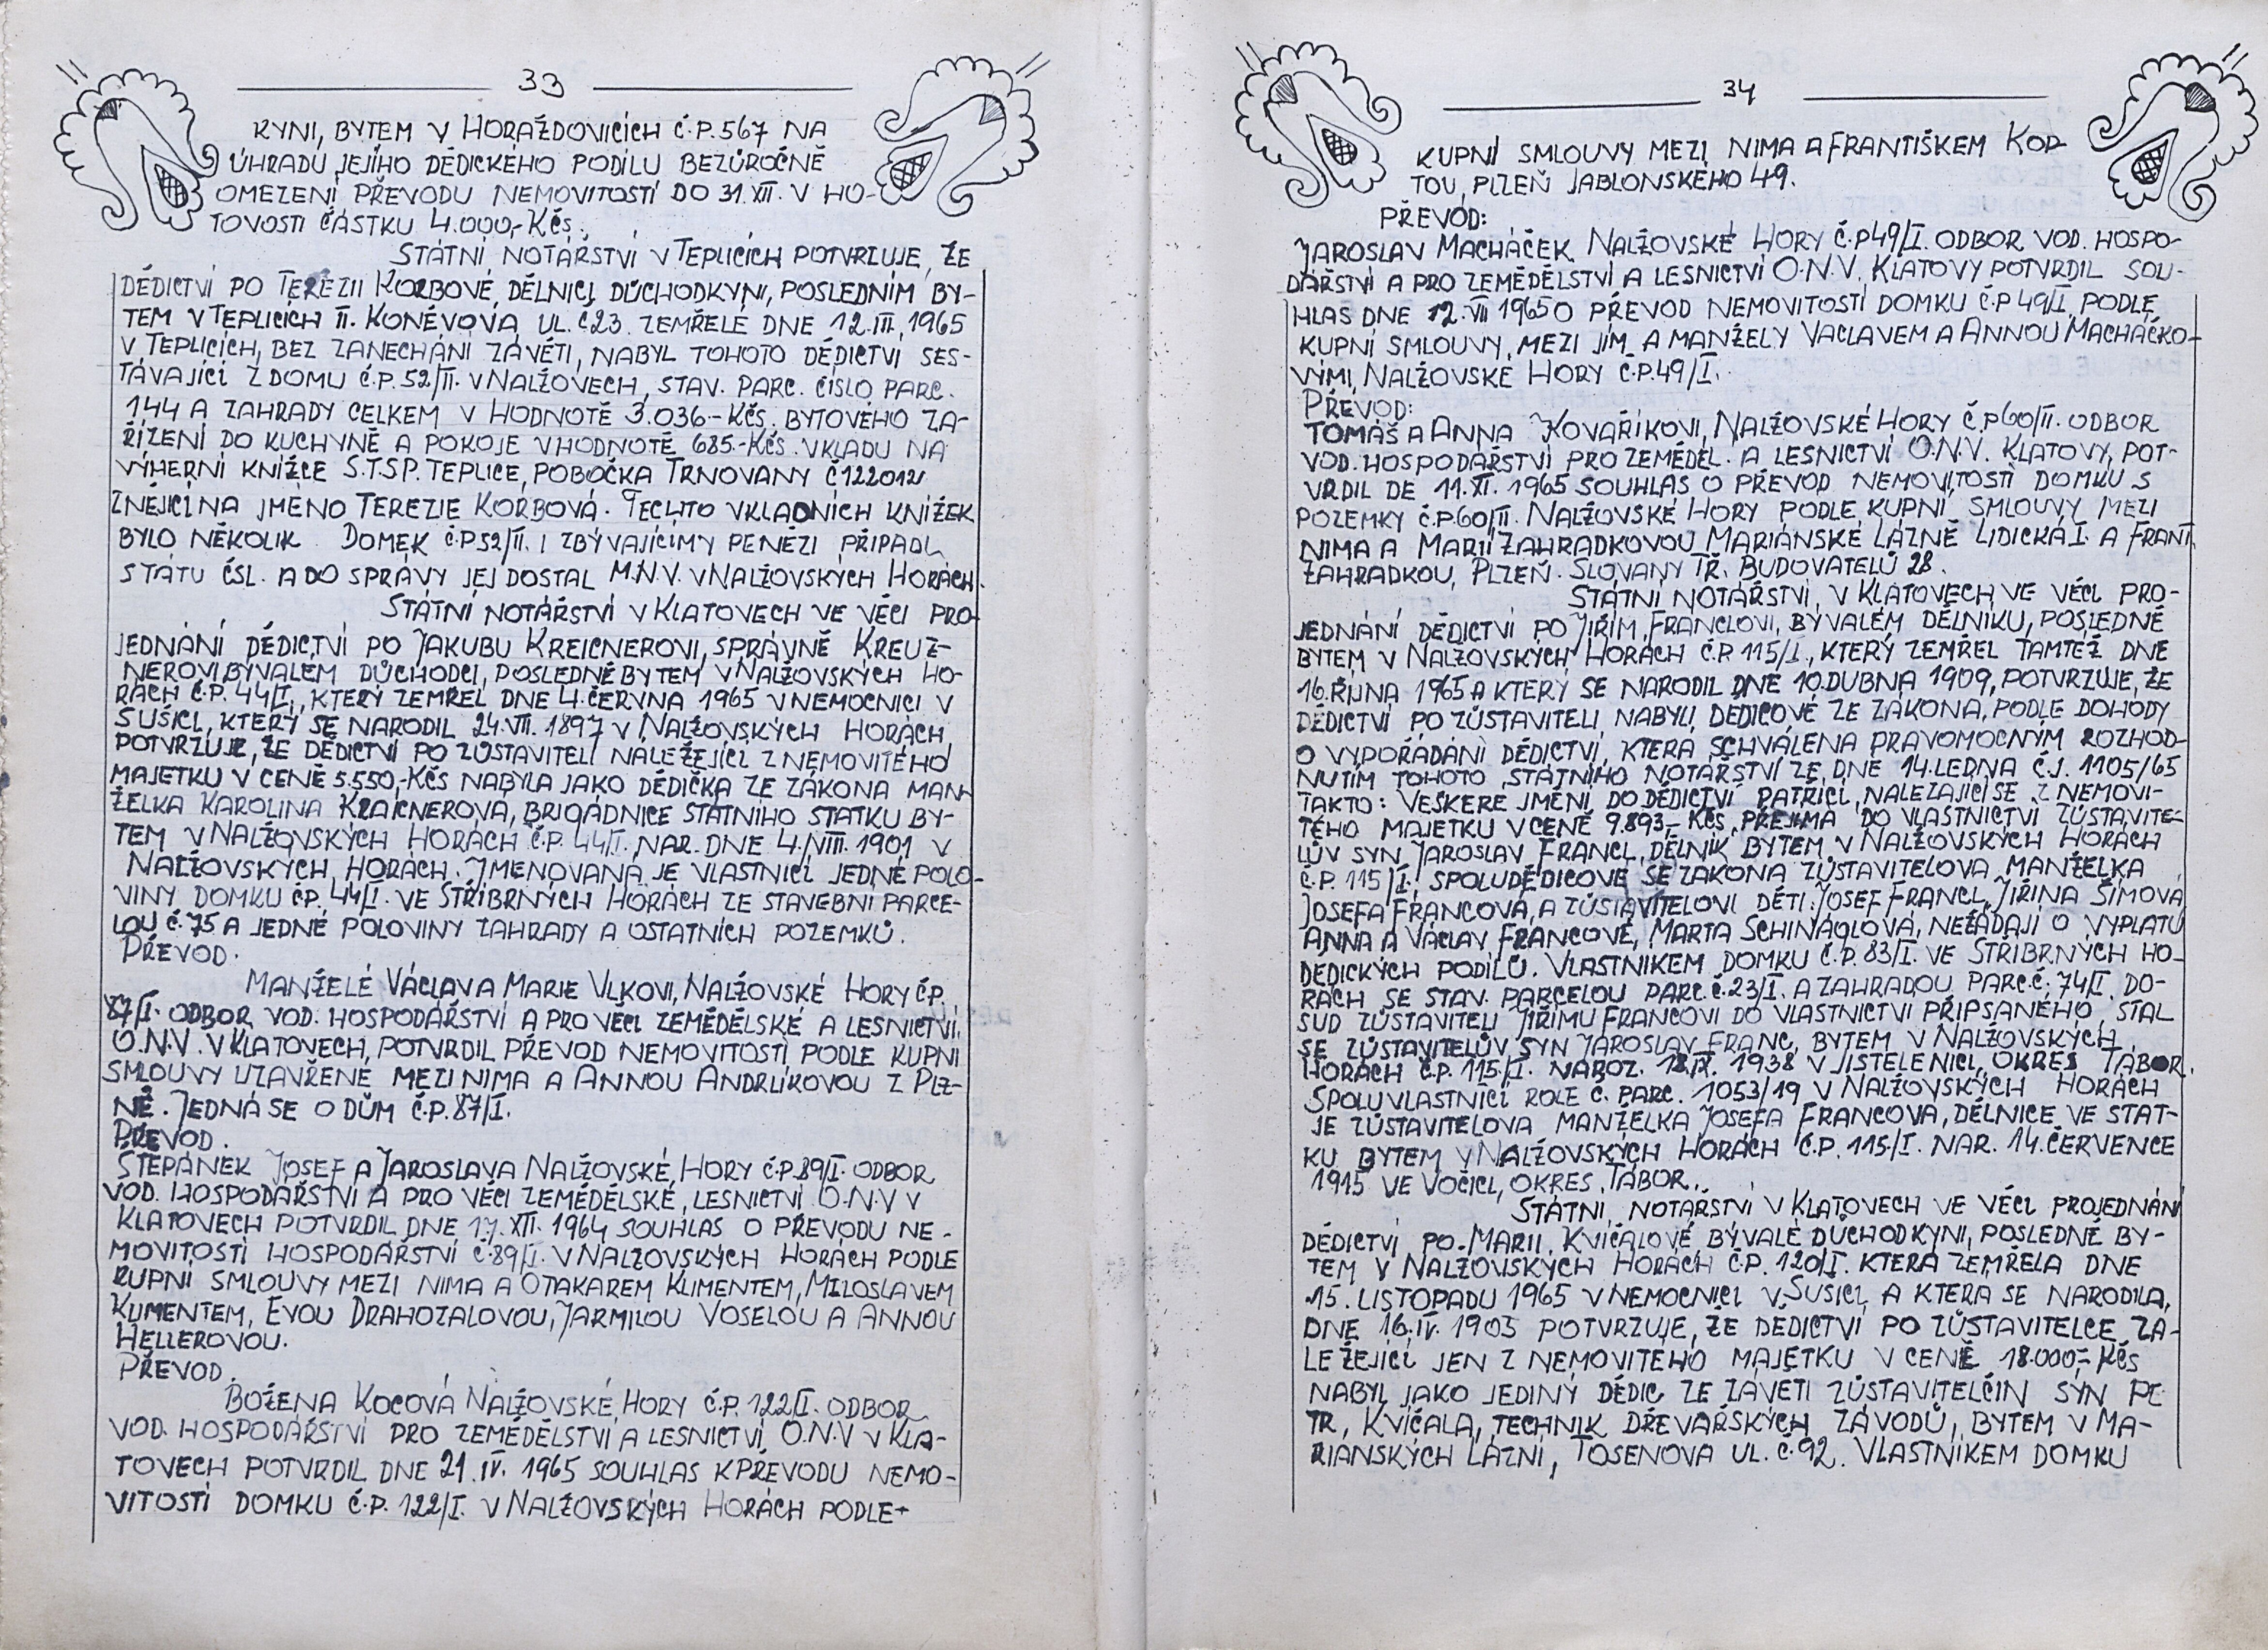 33
KYNI, BYTEM V HORAŽDOVICÍCH Č.P. 567 NA
ÚHRADU JEJÍHO DĚDICKÉHO PODÍLU BEZÚROČNĚ
OMEZENÍ PŘEVODU NEMOVITOSTÍ DO 31. XII. V HO-
TOVOSTI ČÁSTKU 4.000,- KČS.
STÁTNÍ NOTÁŘSTVÍ V TEPLICÍCH POTVRZUJE, ŽE
DĚDICTVÍ PO TEREZII KORBOVÉ, DĚLNICI, DŮCHODKYNI, POSLEDNÍM BY-
TEM V TEPLICÍCH II. KONĚVOVA UL. Č 23. ZEMŘELÉ DNE 12. III. 1965
V TEPLICÍCH, BEZ ZANECHÁNÍ ZÁVĚTI, NABYL TOHOTO DĚDICTVÍ SES-
TÁVAJÍCÍ Z DOMU Č.P. 52/II. V NALŽOVECH, STAV. PARC. ČÍSLO PARC.
144 A ZAHRADY CELKEM V HODNOTĚ 3.036.- KČS. BYTOVÉHO ZA-
ŘÍZENÍ DO KUCHYNĚ A POKOJE V HODNOTĚ 685.- KČS. VKLADU NA
VÝHERNÍ KNÍŽCE S.T.S.P. TEPLICE, POBOČKA TRNOVANY Č 122012
ZNĚJÍCÍ NA JMÉNO TEREZIE KORBOVÁ. TĚCHTO VKLADNÍCH KNÍŽEK
BYLO NĚKOLIK. DOMEK Č.P 52/II. I ZBÝVAJÍCÍMY PENĚZI PŘIPADL
STÁTU ČSL. A DO SPRÁVY JEJ DOSTAL M.N.V. V NALŽOVSKÝCH HORÁCH.
STÁTNÍ NOTÁŘSTVÍ V KLATOVECH VE VĚCI PRO-
JEDNÁNÍ DĚDICTVÍ PO JAKUBU KREICNEROVI, SPRÁVNĚ KREUZ-
NEROVI BÝVALÉM DŮCHODCI, POSLEDNĚ BYTEM V NALŽOVSKÝCH HO-
RÁCH Č.P. 44/I., KTERÝ ZEMŘEL DNE 4. ČERVNA 1965 V NEMOCNICI V
SUŠICI, KTERÝ SE NARODIL 24. VII. 1897 V NALŽOVSKÝCH HORÁCH
POTVRZUJE, ŽE DĚDICTVÍ PO ZŮSTAVITELI NALEŽEJÍCÍ Z NEMOVITÉHO
MAJETKU V CENĚ 5.550,- KČS NABYLA JAKO DĚDIČKA ZE ZÁKONA MAN-
ŽELKA KAROLINA KRAICNEROVÁ, BRIGÁDNICE STÁTNÍHO STATKU BY-
TEM V NALŽOVSKÝCH HORÁCH Č.P. 44/I. NAR. DNE 4. VIII. 1901 V
NALŽOVSKÝCH HORÁCH. JMENOVANÁ JE VLASTNICÍ JEDNÉ POLO-
VINY DOMKU Č.P. 44/I. VE STŘÍBRNÝCH HORÁCH ZE STAVEBNÍ PARCE-
LOU Č. 75 A JEDNÉ POLOVINY ZAHRADY A OSTATNÍCH POZEMKŮ.
PŘEVOD.
MANŽELÉ VÁCLAV A MARIE VLKOVI, NALŽOVSKÉ HORY Č.P.
87/I. ODBOR VOD. HOSPODÁŘSTVÍ A PRO VĚCI ZEMĚDĚLSKÉ A LESNICTVÍ.
O.N.V. V KLATOVECH, POTVRDIL PŘEVOD NEMOVITOSTÍ PODLE KUPNÍ
SMLOUVY UZAVŘENÉ MEZI NIMA A ANNOU ANDRLÍKOVOU Z PLZ-
NĚ. JEDNÁ SE O DŮM Č.P. 87/I.
PŘEVOD.
ŠTĚPÁNEK JOSEF A JAROSLAVA NALŽOVSKÉ HORY Č.P. 89/I. ODBOR
VOD. HOSPODÁŘSTVÍ A PRO VĚCI ZEMĚDĚLSKÉ, LESNICTVÍ O.N.V V
KLATOVECH POTVRDIL DNE 17. XII. 1964 SOUHLAS O PŘEVODU NE-
MOVITOSTÍ HOSPODÁŘSTVÍ Č. 89/I. V NALŽOVSKÝCH HORÁCH PODLE
KUPNÍ SMLOUVY MEZI NIMA A OTAKAREM KLIMENTEM, MILOSLAVEM
KLIMENTEM, EVOU DRAHOZALOVOU, JARMILOU VOSELOU A ANNOU
HELLEROVOU.
PŘEVOD.
BOŽENA KOCOVÁ NALŽOVSKÉ HORY Č.P. 122/I. ODBOR
VOD. HOSPODÁŘSTVÍ PRO ZEMĚDĚLSTVÍ A LESNICTVÍ O.N.V V KLA-
TOVECH POTVRDIL DNE 21. IV. 1965 SOUHLAS K PŘEVODU NEMO-
VITOSTÍ DOMKU Č.P. 122/I. V NALŽOVSKÝCH HORÁCH PODLE-
34
KUPNÍ SMLOUVY MEZI NIMA A FRANTIŠKEM KOR-
TOU, PLZEŇ JABLONSKÉHO 49.
PŘEVOD:
JAROSLAV MACHÁČEK NALŽOVSKÉ HORY Č.P 49/I. ODBOR VOD. HOSPO-
DÁŘSTVÍ A PRO ZEMĚDĚLSTVÍ A LESNICTVÍ O.N.V. KLATOVY POTVRDIL SOU-
HLAS DNE 12. VII 1965 O PŘEVOD NEMOVITOSTÍ DOMKU Č.P 49/I. PODLE
KUPNÍ SMLOUVY, MEZI JÍM A MANŽELY VÁCLAVEM A ANNOU MACHÁČKO-
VÝMI, NALŽOVSKÉ HORY Č.P. 49/I.
PŘEVOD:
TOMÁŠ A ANNA KOVAŘÍKOVI, NALŽOVSKÉ HORY Č.P 60/II. ODBOR
VOD. HOSPODÁŘSTVÍ PRO ZEMĚDĚL. A LESNICTVÍ O.N.V. KLATOVY, POT-
VRDIL DE 11. XI. 1965 SOUHLAS O PŘEVOD NEMOVITOSTÍ DOMKU S
POZEMKY Č.P. 60/II. NALŽOVSKÉ HORY PODLE KUPNÍ SMLOUVY MEZI
NIMA A MARIÍ ZAHRÁDKOVOU MARIÁNSKÉ LÁZNĚ LIDICKÁ I. A FRANT.
ZAHRÁDKOU, PLZEŇ. SLOVANY TŘ. BUDOVATELŮ 28.
STÁTNÍ NOTÁŘSTVÍ, V KLATOVECH VE VĚCI PRO-
JEDNÁNÍ DĚDICTVÍ PO JIŘÍM FRANCLOVI, BÝVALÉM DĚLNÍKU, POSLEDNĚ
BYTEM V NALŽOVSKÝCH HORÁCH Č.P. 115/I., KTERÝ ZEMŘEL TAMTÉŽ DNE
16. ŘÍJNA 1965 A KTERÝ SE NARODIL DNE 10. DUBNA 1909, POTVRZUJE, ŽE
DĚDICTVÍ PO ZŮSTAVITELI NABYLI DĚDICOVÉ ZE ZÁKONA, PODLE DOHODY
O VYPOŘÁDÁNÍ DĚDICTVÍ, KTERÁ SCHVÁLENA PRAVOMOCNÝM ROZHOD-
NUTÍM TOHOTO STÁTNÍHO NOTÁŘSTVÍ ZE DNE 14. LEDNA Č.J. 1105/65
TAKTO: VEŠKERÉ JMĚNÍ DO DĚDICTVÍ PATŘÍCÍ, NALEZAJÍCÍ SE Z NEMOVI-
TÉHO MAJETKU V CENĚ 9.893,- KČS, PŘEJÍMÁ DO VLASTNICTVÍ ZŮSTAVITE-
LŮV SYN JAROSLAV FRANCL, DĚLNÍK BYTEM V NALŽOVSKÝCH HORÁCH
Č.P. 115/I. SPOLUDĚDICOVÉ SE ZÁKONA ZŮSTAVITELOVA MANŽELKA
JOSEFA FRANCOVÁ, A ZŮSTAVITELOVI DĚTI: JOSEF FRANCL, JIŘINA ŠÍMOVÁ
ANNA A VÁCLAV FRANCOVÉ, MARTA SCHINAGLOVÁ, NEŽÁDAJÍ O VÝPLATU
DĚDICKÝCH PODÍLŮ. VLASTNÍKEM DOMKU Č.P. 83/I. VE STŘÍBRNÝCH HO-
RÁCH SE STAV. PARCELOU PARC. Č. 23/I. A ZAHRADOU PARC. Č. 74/I. DO-
SUD ZŮSTAVITELI JIŘÍMU FRANCOVI DO VLASTNICTVÍ PŘIPSANÉHO, STAL
SE ZŮSTAVITELŮV SYN JAROSLAV FRANC, BYTEM V NALŽOVSKÝCH
HORÁCH Č.P. 115/I. NAROZ. 18. IX. 1938 V JISTELENICI, OKRES TÁBOR.
SPOLUVLASTNICÍ ROLE Č. PARC. 1053/19 V NALŽOVSKÝCH HORÁCH
JE ZŮSTAVITELOVA MANŽELKA JOSEFA FRANCOVÁ, DĚLNICE VE STAT-
KU BYTEM V NALŽOVSKÝCH HORÁCH Č.P. 115/I. NAR. 14. ČERVENCE
1915 VE VOČICI, OKRES TÁBOR.
STÁTNÍ NOTÁŘSTVÍ V KLATOVECH VE VĚCI PROJEDNÁNÍ
DĚDICTVÍ PO MARII KVÍČALOVÉ BÝVALÉ DŮCHODKYNI, POSLEDNĚ BY-
TEM V NALŽOVSKÝCH HORÁCH Č.P. 120/I. KTERÁ ZEMŘELA DNE
15. LISTOPADU 1965 V NEMOCNICI V SUŠICI, A KTERÁ SE NARODILA,
DNE 16. IV. 1903 POTVRZUJE, ŽE DĚDICTVÍ PO ZŮSTAVITELCE ZA-
LEŽEJÍCÍ JEN Z NEMOVITÉHO MAJETKU V CENĚ 18.000,- KČS
NABYL JAKO JEDINÝ DĚDIC ZE ZÁVĚTI ZŮSTAVITELČIN SYN PE-
TR, KVÍČALA, TECHNIK DŘEVAŘSKÝCH ZÁVODŮ, BYTEM V MA-
RIÁNSKÝCH LÁZNÍ, TOSENOVA UL. Č. 92. VLASTNÍKEM DOMKU